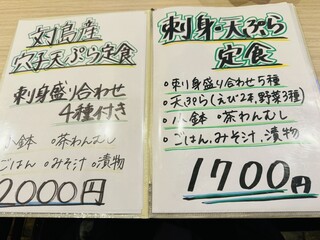 対島産
穴子天ぷら定食
刺身盛り合わせ
4種付き
小鉢 ○茶わんむし
ごはん ○みそ汁 ○漬物
2000円
刺身・天ぷら
定食
○刺身盛り合わせ5種
○天ぷら(えび2本、野菜3種)
○小鉢 ○茶わんむし
○ごはん、みそ汁、漬物
1700円